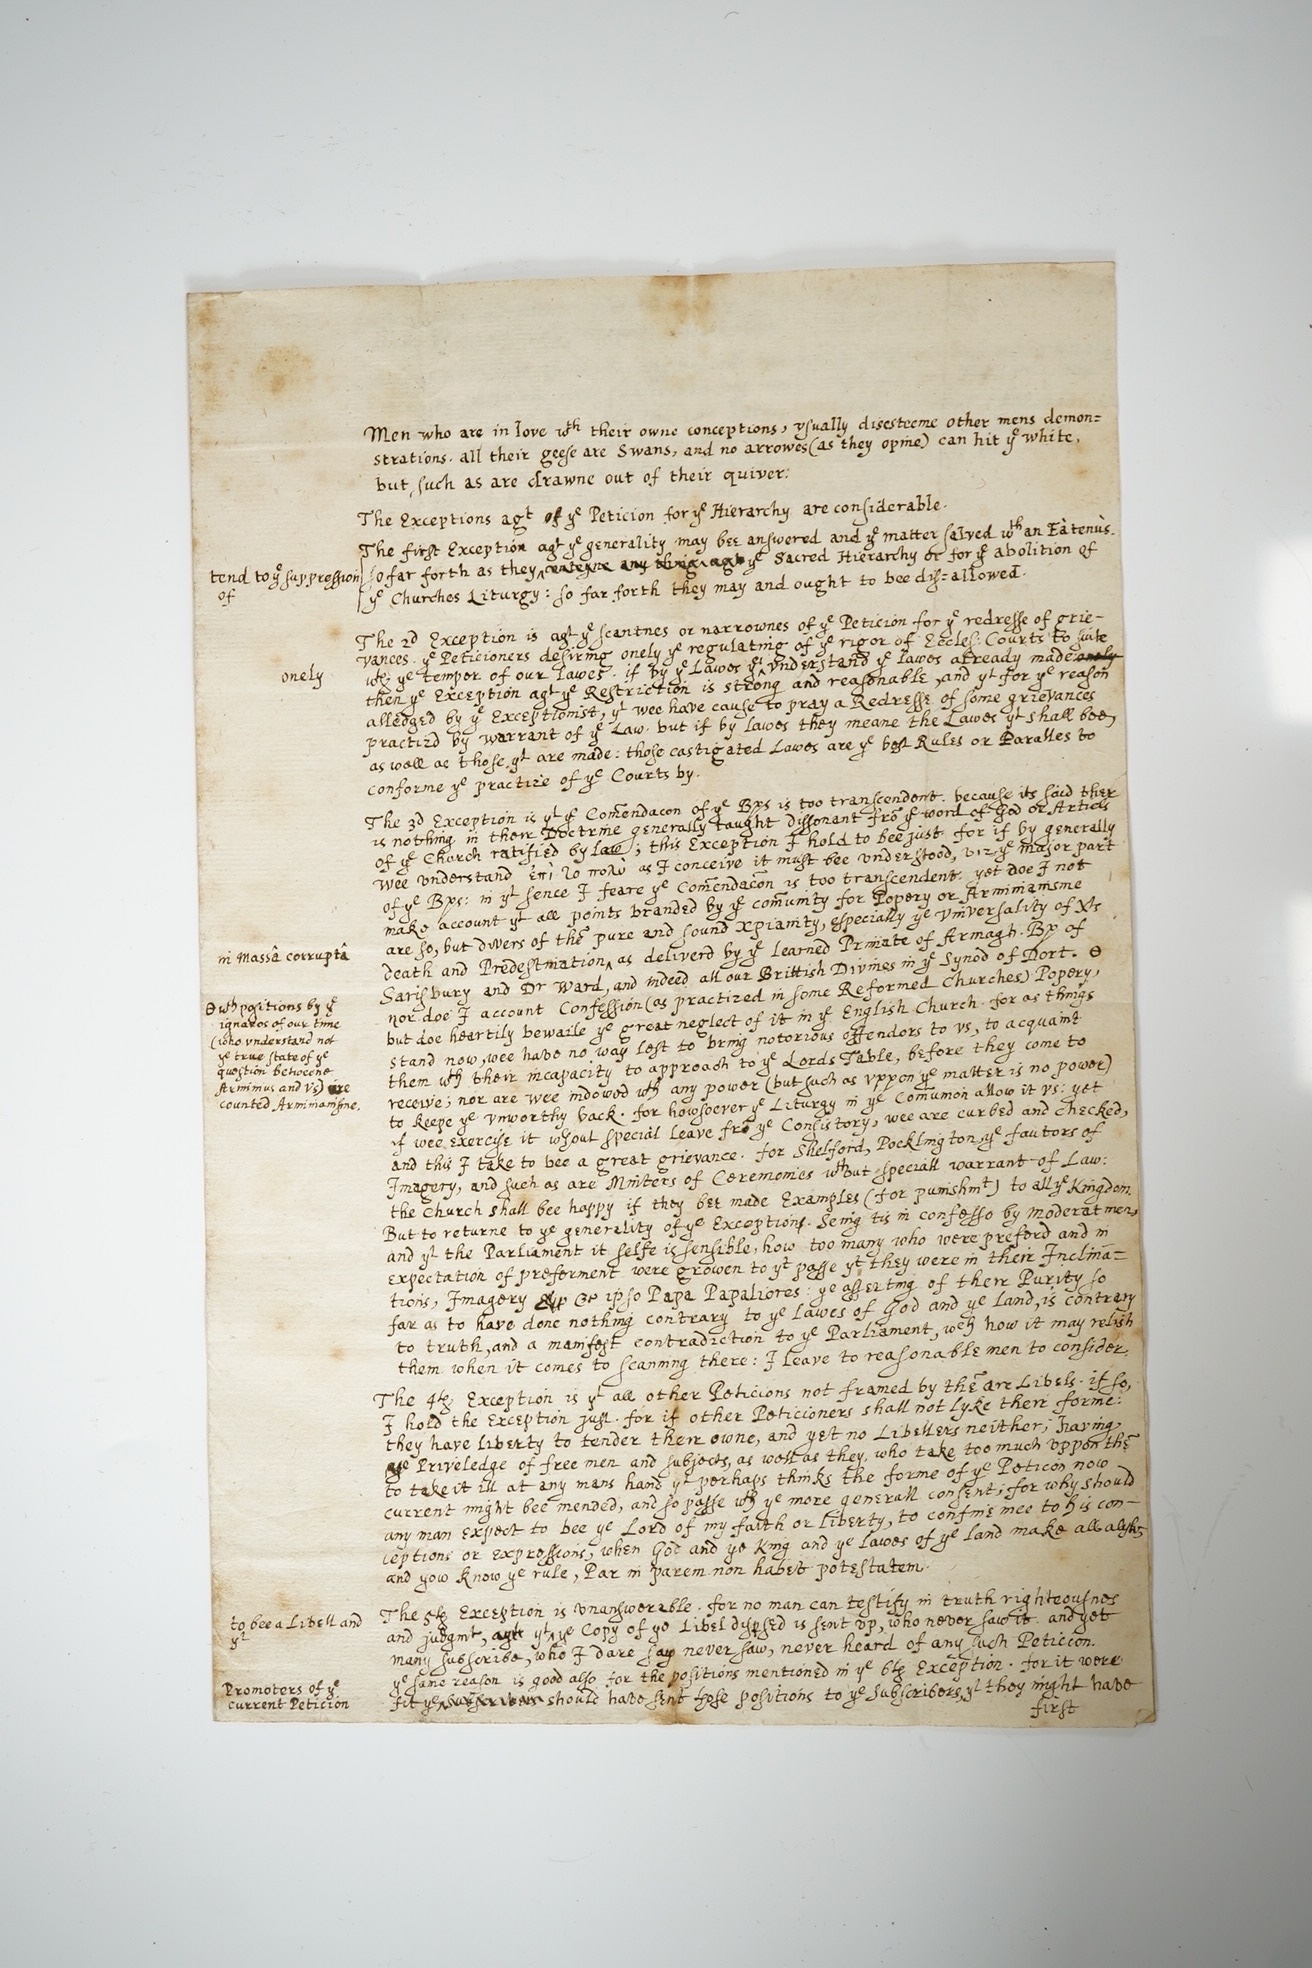 Men who are in love wth their owne conceptions, vsually disesteeme other mens demon=
strations. all their geese are Swans, and no arrowes (as they opine) can hit ye white,
but such as are drawne out of their quiver:
The Exceptions agt of ye Peticion for ye Hierarchy are considerable.
The first Exception agt ye generality may bee answered and ye matter salved wth an Eàtenùs.
tend to ye suppression
of
so far forth as they any thing agt ye Sacred Hierarchy or for ye abolition of
ye Churches Liturgy: so far forth they may and ought to bee dis=allowed.
The 2d Exception is agt ye scantnes or narrownes of ye Peticion for ye redresse of grie-
vances. ye Peticioners desiring onely ye regulating of ye rigor of Eccles: Courts to suite
onely
wth ye temper of our lawes. if by ye Lawes yt vnderstand ye lawes already made onely
then ye Exception agt ye Restriction is strong and reasonable, and yt for ye reason
alledged by ye Exceptionist, yt wee have cause to pray a Redresse of some grievances
practizd by warrant of ye Law. but if by lawes they meane the Lawes yt shall bee,
as well as those yt are made: those castigated Lawes are ye best Rules or Paralles to
conforme ye practize of ye Courts by.
The 3d Exception is yt ye Comendacon of ye Bps is too transcendent. because its said ther
is nothing in their Doctrine generally taught dissonant fro ye word of God or Articls
of ye Church ratified by law; this Exception I hold to bee just. for if by generally
wee vnderstand ἐπὶ τὸ πολὺ as I conceive it must bee vnderstood, viz ye major part
of ye Bps: in yt sence I feare ye Comendacon is too transcendent. yet doe I not
make account yt all points branded by ye comunity for Popery or Arminianisme
are so, but divers of the pure and sound xpianity, especially ye vniversality of Xts
in Massâ corruptâ
death and Predestination, as deliverd by ye learned Primate of Armagh. Bp of
Sarisbury and Dr Ward, and indeed all our Brittish Divines in ye Synod of Dort. Θ
Θ wch positions by ye
ignaros of our time
(who vnderstand not
ye true state of ye
question betweene
Arminius and vs) are
counted Arminianisme.
nor doe I account Confession (as practized in some Reformed Churches) Popery,
but doe heartily bewaile ye great neglect of it in ye English Church. for as things
stand now, wee have no way left to bring notorious offendors to vs, to acquaint
them wth their incapacity to approach to ye Lords Table, before they come to
receive; nor are wee indowed wth any power (but such as vppon ye matter is no power)
to keepe ye vnworthy back. for howsoever ye Liturgy in ye Comunion allow it vs: yet
if wee exercise it wthout special leave fro ye Consistory, wee are curbed and checked,
and this I take to bee a great grievance. for Shelford, Pocklington, ye fautors of
Imagery, and such as are Mniters of Ceremonies wthout speciall warrant of Law:
the Church shall bee happy if they bee made Examples (for punishmt) to all ye Kingdom.
But to returne to ye generality of ye Exceptions. Seing tis in confesso by moderat men,
and yt the Parliament it selfe is sensible, how too many who were preferd and in
expectation of preferment were growen to yt passe yt they were in their Inclina=
tions, Imagery & ipso Papa Papaliores: ye asserting of their Purity so
far as to have done nothing contrary to ye lawes of God and ye land, is contrary
to truth, and a manifest contradiction to ye Parliament, wch how it may relish
them when it comes to scanning there: I leave to reasonable men to consider.
The 4th Exception is yt all other Peticions not framed by the are Libels. if so,
I hold the exception just. for if other Peticioners shall not lyke their forme:
they have liberty to tender their owne, and yet no Libellers neither; having
ye Priveledge of free men and subjects, as well as they. who take too much vppon the
to take it ill at any mans hand yt perhaps thinks the forme of ye Peticon now
current might bee mended, and so passe wth ye more generall consent; for why should
any man expect to bee ye Lord of my faith or liberty, to confine mee to his con-
ceptions or expressions, when God and ye King and ye lawes of ye land make all
and yow know ye rule, Par in parem non habet potestatem.
The 5th Exception is vnanswerable. for no man can testify in truth righteousnes
to bee a Libell and
yt
and judgmt, yt ye Copy of ye Libel dispsed is sent vp, who never saw it. and yet
many subscribe, who I dare say never saw, never heard of any such Peticion.
ye same reason is good also for the positions mentioned in ye 6th Exception. for it were
Promoters of ye
current Peticion
fit ye should have sent those positions to ye subscribers, yt they might have
first